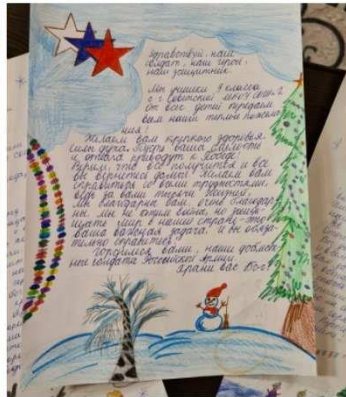 Здравствуй, наш
солдат, наш герой,
наш защитник.
Мы ученики 4 класса
с г. Советский, МКОУ СОШ 2
От всех детей передаем
вам наши теплые пожела
ния!
Желаем вам крепкого здоровья,
силы духа. Пусть ваша смелость
и отвага приведут к Победе!
Верим, что всё получится и все
вы вернётесь домой! Желаем вам
справиться со всеми трудностями,
ведь за вами тысячи людей.
Благодарим вам, очень благодар
ны. Мы не хотим войны, но защи
щать мир в нашей стране - это
ваша важная задача. И вы обяза
тельно справитесь!
Гордимся вами, наши
солдаты Российской Армии
Храни вас Бог!